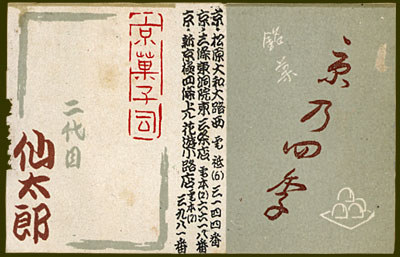 銘菓
京乃四季
京・松原大和大路西 電祇(6)三一四四番
京・三條東洞院東・三条店 電本(2)六六一八番
京・新京極四條上ル花遊小路店 電本(2)三九八一番
京菓子司
二代目
仙太郎